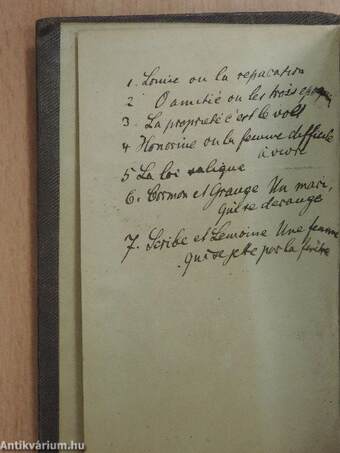 1. Louise ou la reparation
2 O amitié ou les trois epoques
3. La propriété c'est le vol
4 Honorine ou la femme difficile
à vivre
5 La loi salique
6. Cormon et Grange Un mari,
qui se derange
7. Scribe et Lemoine Une femme
qui se jette par la fenêtre
Antikvárium.hu
antikvarium.hu